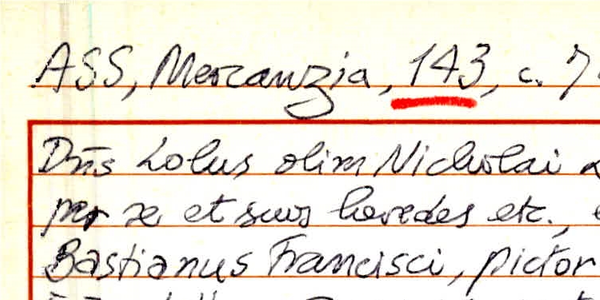 ASS, Mercanzia, 143, c. 7
Dn̄s Lolus olim Nicholai
per se et suos heredes etc.,
Bastianus Francisci, pictor